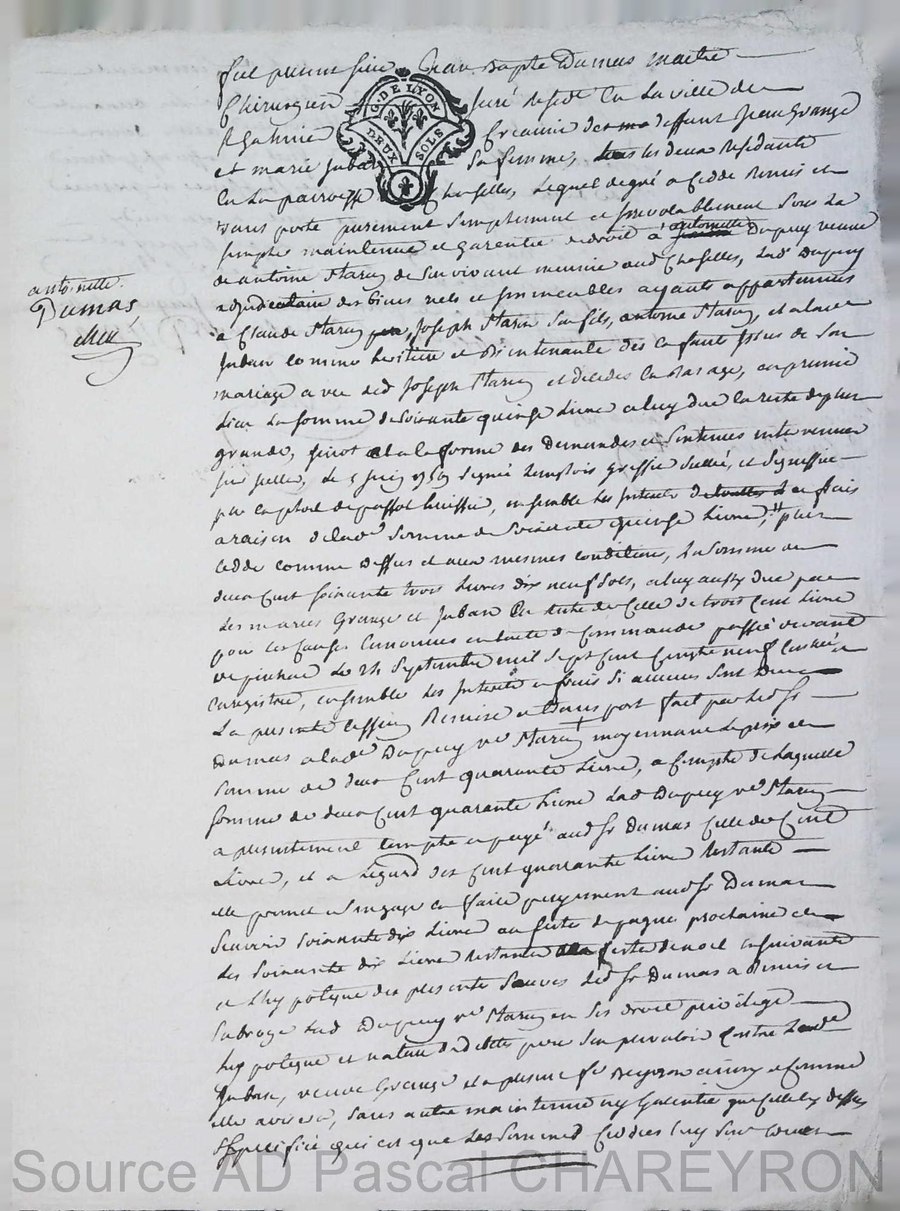 fut present sieur Jean Bapte Dumas maitre
Chirurgien juré resid. en la ville de
G. DE LYON
DEUX SOLS
St Galmier Creancier des deffunt Jean Grange
et marie Juban sa femme, les deux Residants
en la parroisse Chaselles, lequel de gré a cedé Remis et
transporté purement simplement et jrrevocablement sous la
simple maintenue et garentie de droit a antoinette Dupuy veuve
de antoine de son vivant aud. Chaselles, lad. Dupuy
adjudicataire des biens reels et jmmeubles ayants appartenues
a Claude Joseph son fils, antoine et a
Juban comme heritiere et Bientenante des Enfants jssus de son
mariage avec led. Joseph et decedes en Bas age, en premier
lieu la somme de soixante quinze livres a luy due la reste de plus
grande, a la forme des Demandes et Sentences intervenues
sur jcelles, le 5 juin 1759 signé greffier scellé, et signiffiée
par huissier, ensemble les jnterets et frais
a raison de lad. somme de soixante quinze livres, plus
cedde comme dessus et aux mesmes conditions, la somme de
deux Cent soixante trois livres dix neuf sols, a luy aussy due par
les maries Grange et Juban en reste de Celle de trois Cent livres
pour les Causes Enoncées en l'acte de Commande passé devant
le 24 Septembre mil sept Cent Cinquante neuf Controlé et
enregistré, ensemble les jnterets et frais si aucuns sont Dues
La presente Cession Remise et Transport fait par led. sr
Dumas a lad. Dupuy ve moyennant le prix et
somme de deux Cent quarante livres, a Compte de laquelle
somme de deux Cent quarante livres lad. Dupuy ve
a presentement Compté et payé aud. sr Dumas Celle de Cent
livres, et a l'egard des Cent quarante livres restantes
elle promet et s'engage en faire payement aud. sr Dumas
sçavoir soixante dix livres au feste de paque prochaine et
les soixante dix livres restantes a la feste de noel ensuivante
et l'hypoteque des presentes sauves led. sr Dumas a Remis et
subrogé lad. Dupuy ve en ses droits privilege
hypoteque et nature de dette pour s'en prevaloir Contre lade
Juban, veuve Grange et a present fe et Comme
elle avisera, sans autre maintenue ny Garentie que celle cy dessus
Speciffiée qui est que les sommes Cedées luy sont dues
antoinette
Dumas
Source AD Pascal CHAREYRON